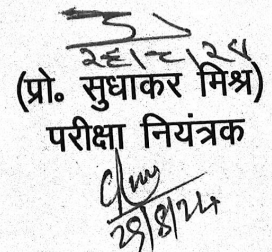 २६।८।२४
(प्रो० सुधाकर मिश्र)
परीक्षा नियंत्रक
29/8/24